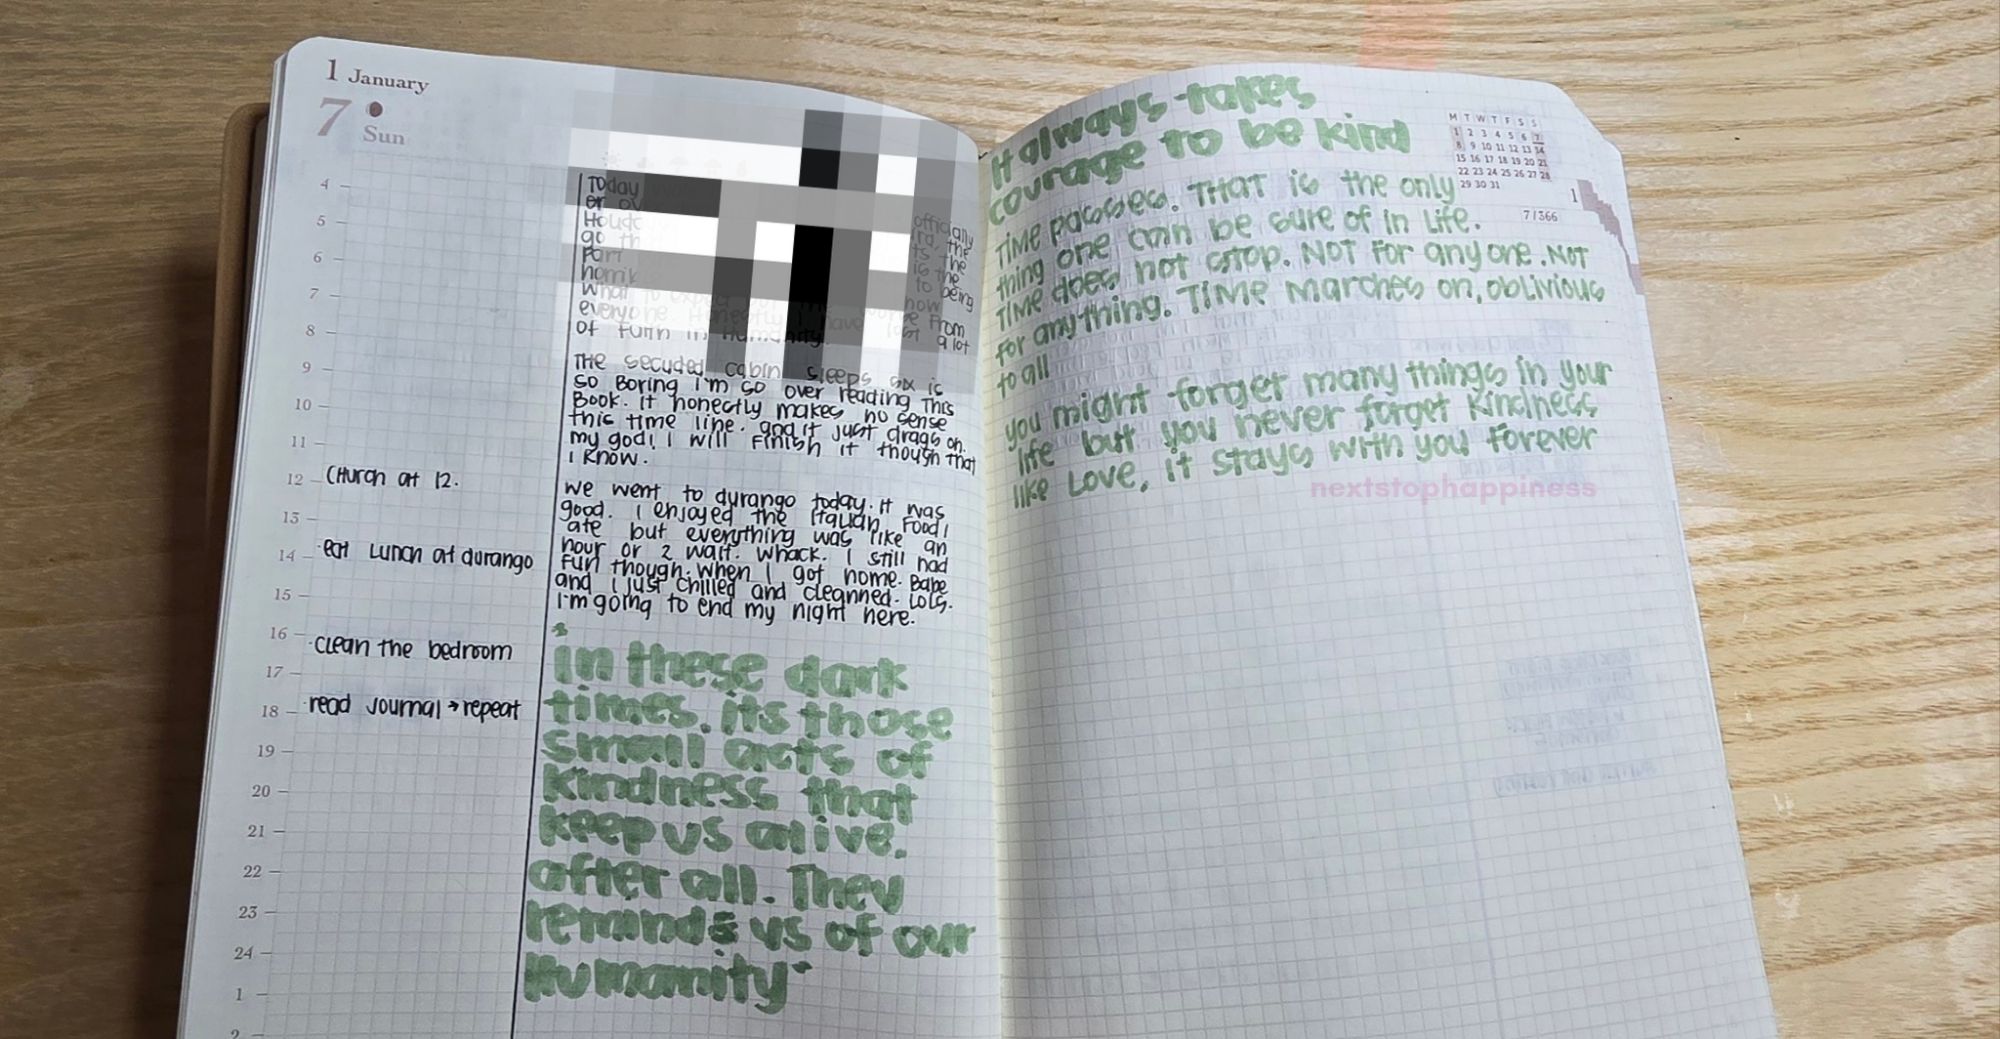 1 January
7
Sun
Today
officially
the
the
is the
to being
now
everyone. Honestly I have lost a lot
of faith in humanity.
The secuded cabin sleeps six is
so Boring i'm so over reading This
Book. it honestly makes no sense
this time line. and it just drags on.
my god! I will finish it though that
i know.
we went to durango today. it was
good. i enjoyed the italian food i
ate but everything was like an
hour or 2 wait. whack. i still had
fun though. when I got home. Babe
and i just chilled and cleanned. Lols.
i'm going to end my night here.
4
5
6
7
8
9
10
11
12 Church at 12.
13
14 ·eat Lunch at durango
15
16 ·clean the bedroom
17
18 ·read Journal → repeat
19
20
21
22
23
24
1
2
"in these dark
times. its those
small acts of
kindness that
keep us alive.
after all. They
reminds us of our
Humanity"
It always takes
courage to be kind
Time passes. THAT is the only
thing one can be sure of in life.
Time does not stop. NOT For anyone. NOT
for anything. Time marches on, oblivious
to all
you might forget many things in your
life but you never forget kindness
like Love, it stays with you forever
nextstophappiness
M T W T F S S
1 2 3 4 5 6 7
8 9 10 11 12 13 14
15 16 17 18 19 20 21
22 23 24 25 26 27 28
29 30 31
1
7/366